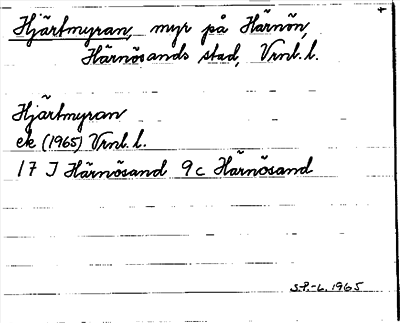 Hjärtmyran, myr på Härnön,
Härnösands stad, Vrnl. l.
Hjärtmyran
ek (1965) Vrnl. l.
17 J Härnösand 9c Härnösand
S-P.-L. 1965